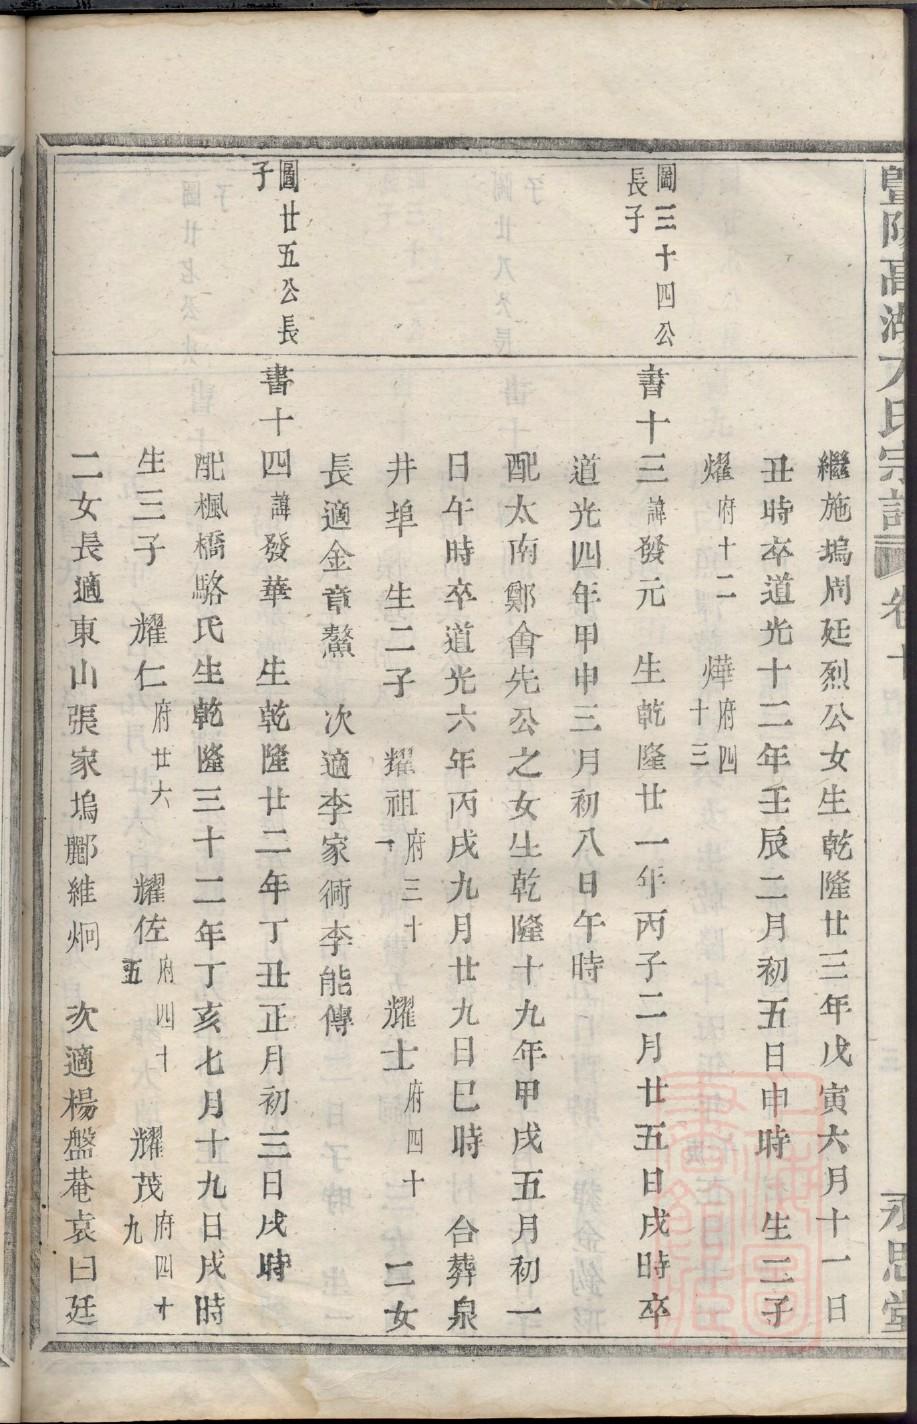 暨陽高湖方氏宗譜 卷十 永思堂
繼施塢周廷烈公女生乾隆廿三年戊寅六月十一日
丑時卒道光十二年壬辰二月初五日申時 生二子
燿府十二 燁府四十三
圖三十四公長子
書十三諱發元 生乾隆廿一年丙子二月廿五日戌時卒
道光四年甲申三月初八日午時
配太南鄭會先公之女生乾隆十九年甲戌五月初一
日午時卒道光六年丙戌九月廿九日巳時 合葬泉
井埠 生二子 耀祖府三十一 耀士府四十 二女
長適金章鰲 次適李家衕李能傳
圖廿五公長子
書十四諱發華 生乾隆廿二年丁丑正月初三日戌時
配楓橋駱氏生乾隆三十二年丁亥七月十九日戌時
生三子 耀仁府廿六 耀佐府四十五 耀茂府四十九
二女長適東山張家塢酈維炯 次適楊盤菴袁曰廷